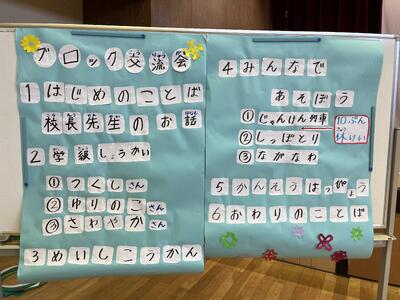 ブロック交流会
1はじめのことば
校長先生のお話
2学級しょうかい
①つくしさん
②ゆりのこさん
③さわやかさん
3めいしこうかん
4みんなで
あそぼう
①じゃんけん列車
②しっぽとり
③ながなわ
10ぷん
休けい
5かんそうはっぴょう
6おわりのことば